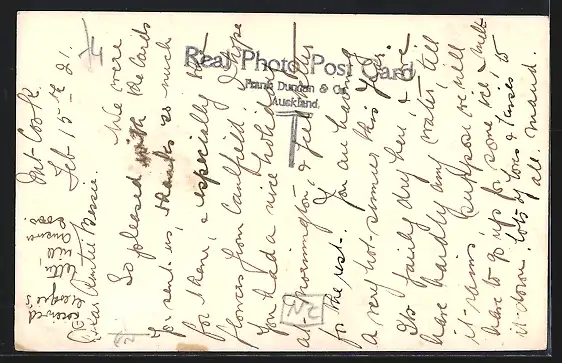 Mt Cook.
Feb 15th 21.
Dear Auntie Bessie.
We were
So pleased with the Cards
you sent us. Thanks so much
for them, & especially the
flowers from Caulfield. I hope
you had a nice holiday
at Mornington, & feel better
for the rest. You are having
a very hot summer this year.
Its fairly dry here, & we
have hardly any water, till
it rains. Suppose we will
have to go up for some ice & melt
it down. Lots of love & kisses to
all. Maud.
received
George's
letter
will
answer
soon.
Real Photo Post Card
Frank Duncan & Co.
Auckland.
NZ